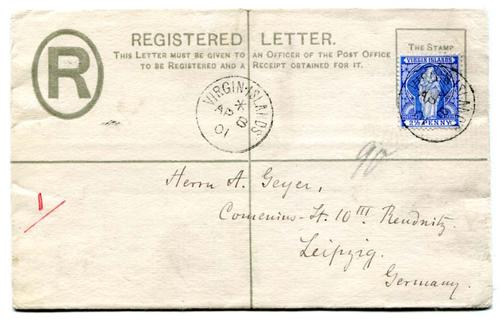 REGISTERED LETTER.
THIS LETTER MUST BE GIVEN TO AN OFFICER OF THE POST OFFICE
TO BE REGISTERED AND A RECEIPT OBTAINED FOR IT.
R
THE STAMP
VIRGIN ISLANDS
2½ PENNY
VIRGIN-ISLANDS
AP 8
01
90
Herrn A. Geyer,
Comenius-St. 10III. Reudnitz.
Leipzig.
Germany.
1